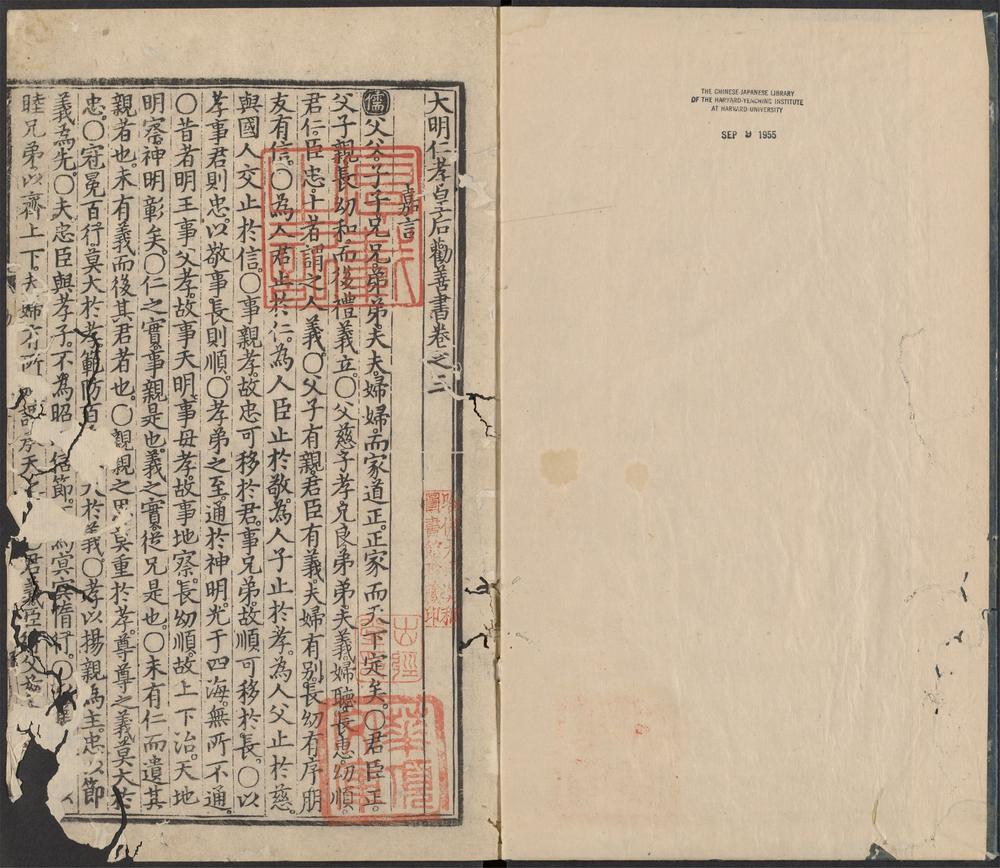 THE CHINESE-JAPANESE LIBRARY
OF THE HARVARD-YENCHING INSTITUTE
AT HARVARD UNIVERSITY
SEP 9 1955
大明仁孝皇后勸善書卷之二
嘉言
儒父父子子兄兄弟弟夫夫婦婦而家道正正家而天下定矣○君臣正
父子親長幼和而後禮義立○父慈子孝兄良弟弟夫義婦聽長惠幼順
君仁臣忠十者謂之人義○父子有親君臣有義夫婦有别長幼有序朋
友有信○為人君止於仁為人臣止於敬為人子止於孝為人父止於慈
與國人交止於信○事親孝故忠可移於君事兄弟故順可移於長○以
孝事君則忠以敬事長則順○孝弟之至通於神明光于四海無所不通
○昔者明王事父孝故事天明事母孝故事地察長幼順故上下治天地
明察神明彰矣○仁之實事親是也義之實從兄是也○未有仁而遺其
親者也未有義而後其君者也○親親之恩莫重於孝尊尊之義莫大於
忠○冠冕百行莫大於孝範防百於義○孝以揚親為主忠以節
義為先○夫忠臣與孝子不為昭信節冥冥惰行
睦兄弟以齊上下夫婦有所天君義臣父慈